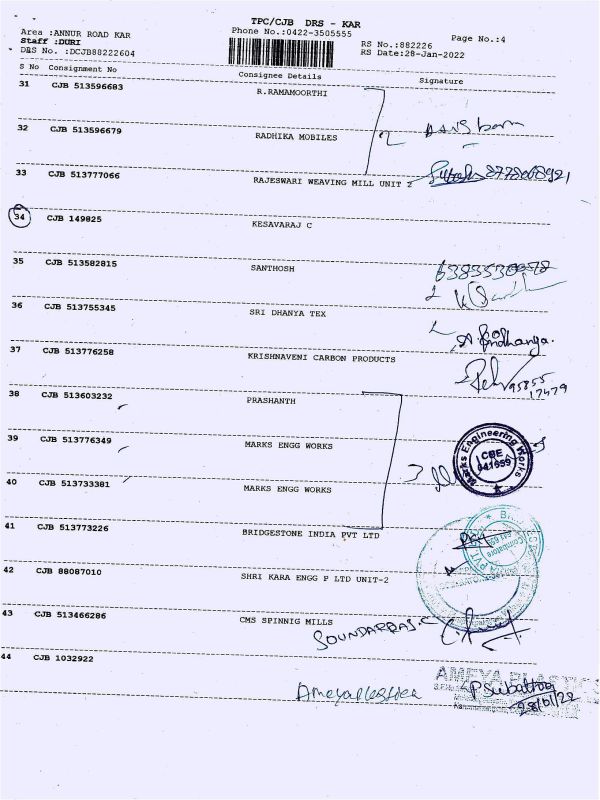 TPC/CJB DRS - KAR
Area :ANNUR ROAD KAR
Phone No.:0422-3505555
Page No.:4
Staff :DURI
RS No.:882226
DRS No. :DCJB88222604
RS Date:28-Jan-2022
S No Consignment No Consignee Details Signature
31 CJB 513596683 R.RAMAMOORTHI
32 CJB 513596679 RADHIKA MOBILES
33 CJB 513777066 RAJESWARI WEAVING MILL UNIT 2
34 CJB 149825 KESAVARAJ C
35 CJB 513582815 SANTHOSH
36 CJB 513755345 SRI DHANYA TEX
37 CJB 513776258 KRISHNAVENI CARBON PRODUCTS
95855
17479
38 CJB 513603232 PRASHANTH
39 CJB 513776349 MARKS ENGG WORKS
Marks Engineering Works
CBE
641659
40 CJB 513733381 MARKS ENGG WORKS
41 CJB 513773226 BRIDGESTONE INDIA PVT LTD
42 CJB 88087010 SHRI KARA ENGG P LTD UNIT-2
43 CJB 513466286 CMS SPINNIG MILLS
SOUNDARRAJ.C
44 CJB 1032922
AMEYA PLASTICS
28/01/22